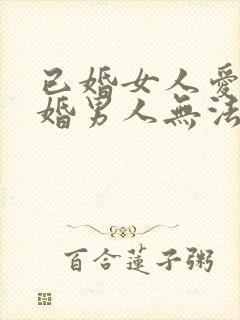 已婚女人愛
婚男人無法
百合蓮子粥